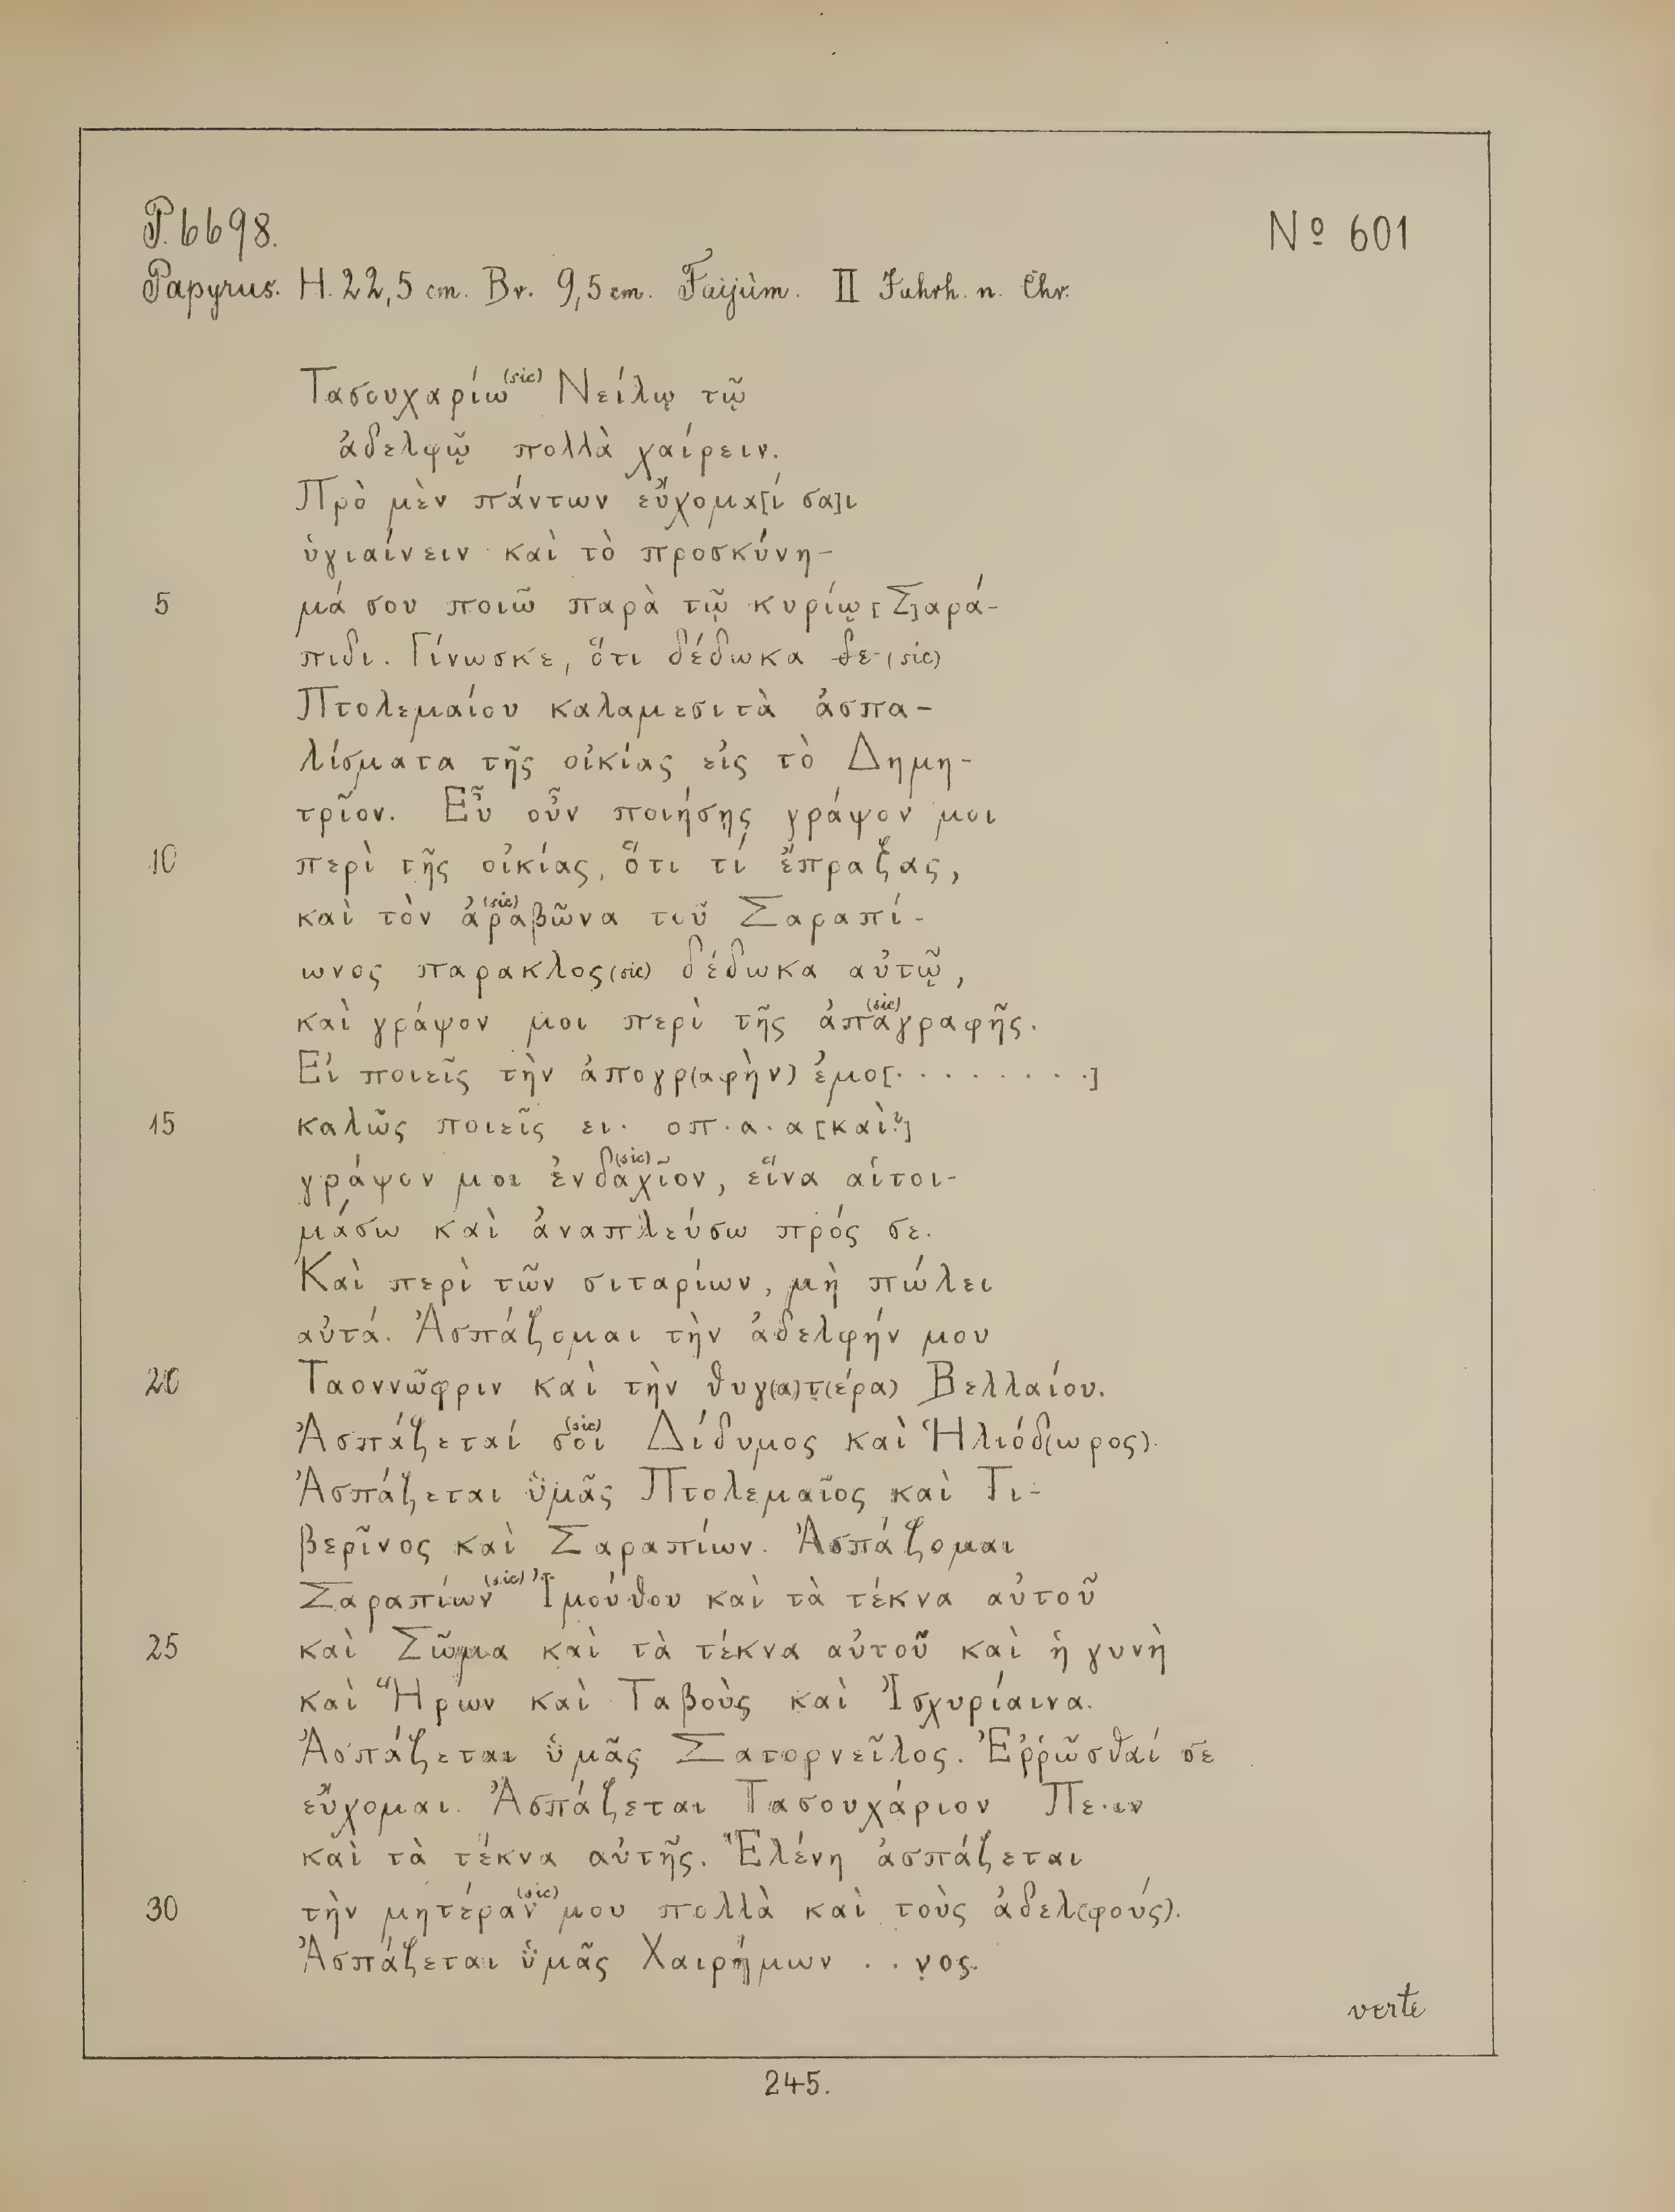 P. 6698.
Nº 601
Papyrus. H. 22,5 cm. Br. 9,5 cm. Faijûm. II Jahrh. n. Chr.
Τασουχαρίω(sic) Νείλῳ τῷ
ἀδελφῷ πολλὰ χαίρειν.
Πρὸ μὲν πάντων εὔχομα[ί σα]ι
ὑγιαίνειν καὶ τὸ προσκύνη-
5 μά σου ποιῶ παρὰ τῷ κυρίῳ [Σ]αρά-
πιδι. Γίνωσκε, ὅτι δέδωκα δε (sic)
Πτολεμαίου καλαμεσιτὰ ἀσπα-
λίσματα τῆς οἰκίας εἰς τὸ Δημη-
τρῖον. Εὖ οὖν ποιήσῃς γράψον μοι
10 περὶ τῆς οἰκίας, ὅτι τί ἔπραξας,
καὶ τὸν ἀραβῶνα(sic) τοῦ Σαραπί-
ωνος παρακλος(sic) δέδωκα αὐτῷ,
καὶ γράψον μοι περὶ τῆς ἀπαγραφῆς(sic).
Εἰ ποιεῖς τὴν ἀπογρ(αφὴν) ἐμο[· · · · · · · ·]
15 καλῶς ποιεῖς ει· οπ·α·α[καὶ?]
γράψον μοι ἐνδαχῖον(sic), εἵνα αἱτοι-
μάσω καὶ ἀναπλεύσω πρός σε.
Καὶ περὶ τῶν σιταρίων, μὴ πώλει
αὐτά. Ἀσπάζομαι τὴν ἀδελφήν μου
20 Ταοννῶφριν καὶ τὴν θυγ(α)τ̣(έρα) Βελλαίου.
Ἀσπάζεταί σοι(sic) Δίδυμος καὶ Ἡλιόδ(ωρος).
Ἀσπάζεται ὑ̈μᾶς Πτολεμαῖος καὶ Τι-
βερῖνος καὶ Σαραπίων. Ἀσπάζομαι
Σαραπίων(sic) Ἰμούθου καὶ τὰ τέκνα αὐτοῦ
25 καὶ Σῶμα καὶ τὰ τέκνα αὐτοῦ καὶ ἡ γυνὴ
καὶ Ἥρων καὶ Ταβοὺς καὶ Ἰσχυρίαινα.
Ἀσπάζεται ὑ̈μᾶς Σατορνεῖλος. Ἐῤῥῶσθαί σε
εὔχομαι. Ἀσπάζεται Τασουχάριον Πε·ιν
καὶ τὰ τέκνα αὐτῆς. Ἑλένη ἀσπάζεται
30 τὴν μητέραν(sic) μου πολλὰ καὶ τοὺς ἀδελ(φούς).
Ἀσπάζεται ὑ̈μᾶς Χαιρήμων . . ν̣ος.
verte
245.